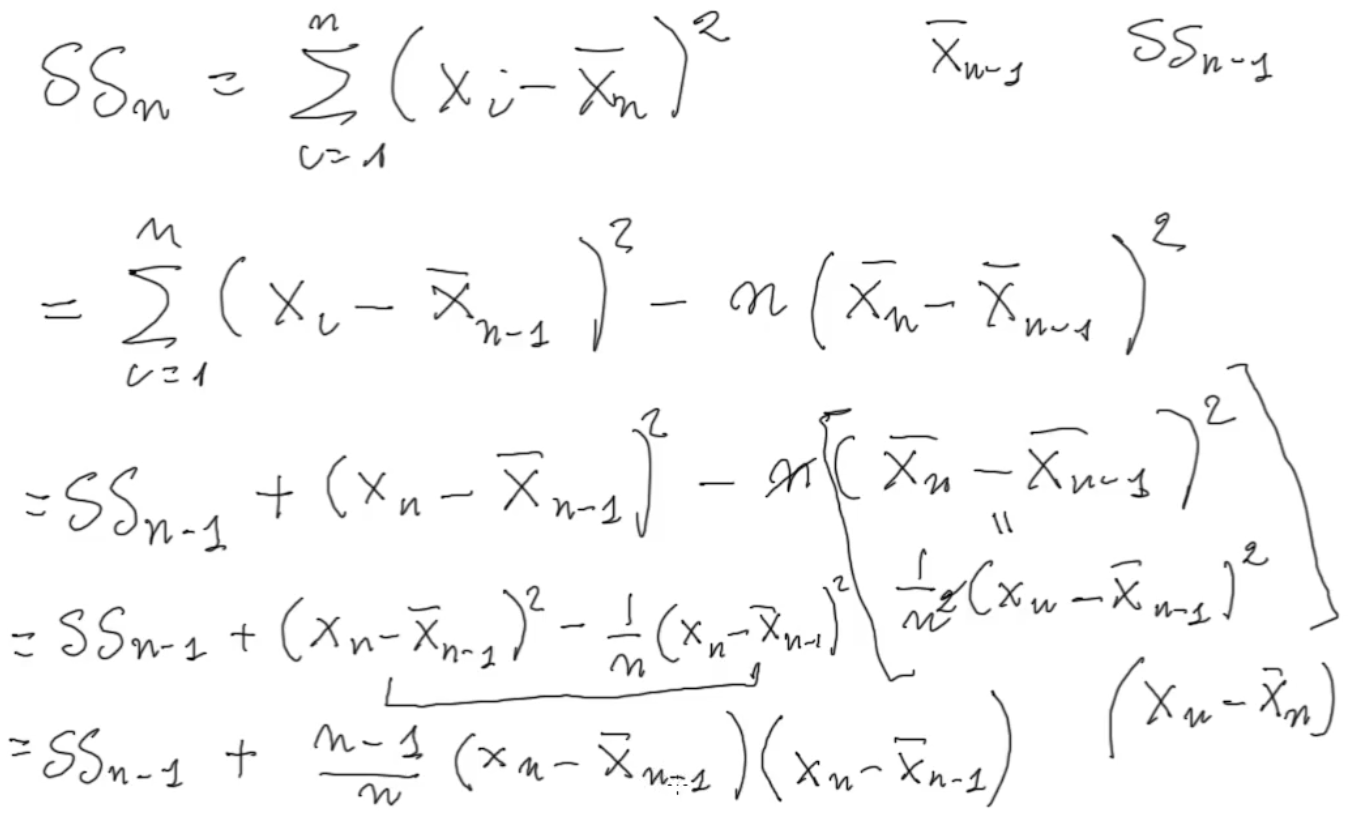 SSₙ = ∑ᵢ₌₁ⁿ (xᵢ − x̄ₙ)² x̄ₙ₋₁ SSₙ₋₁
= ∑ᵢ₌₁ⁿ (xᵢ − x̄ₙ₋₁)² − n (x̄ₙ − x̄ₙ₋₁)²
= SSₙ₋₁ + (xₙ − x̄ₙ₋₁)² − n [(x̄ₙ − x̄ₙ₋₁)²
=
1/n² (xₙ − x̄ₙ₋₁)²]
= SSₙ₋₁ + (xₙ − x̄ₙ₋₁)² − 1/n (xₙ − x̄ₙ₋₁)²
= SSₙ₋₁ + (n−1)/n (xₙ − x̄ₙ₋₁)(xₙ − x̄ₙ₋₁)
(xₙ − x̄ₙ)